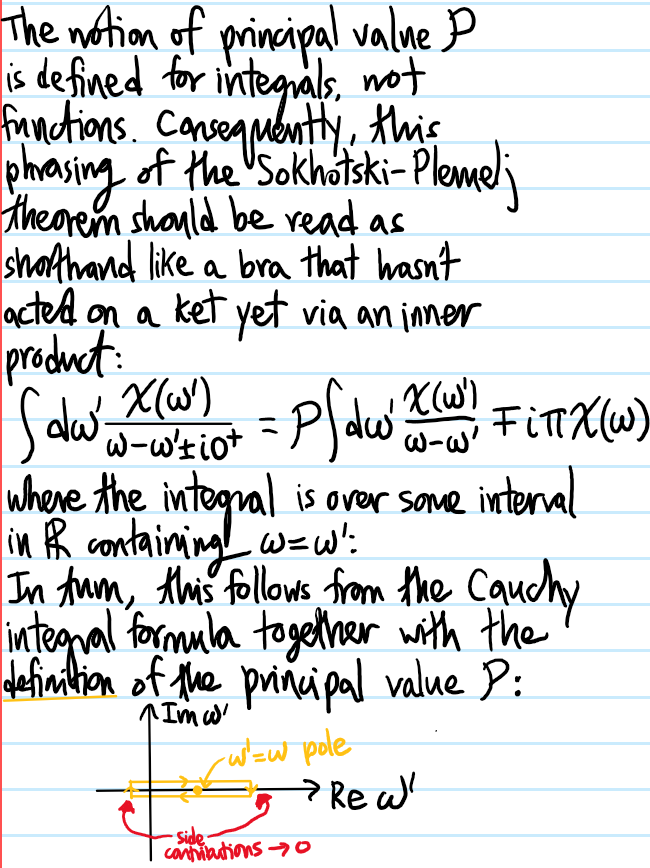 The notion of principal value P
is defined for integrals, not
functions. Consequently, this
phrasing of the Sokhotski-Plemelj
theorem should be read as
shorthand like a bra that hasn't
acted on a ket yet via an inner
product:
∫dω' χ(ω')/(ω-ω'±i0⁺) = P∫dω' χ(ω')/(ω-ω') ∓ iπχ(ω)
where the integral is over some interval
in ℝ containing ω=ω':
In turn, this follows from the Cauchy
integral formula together with the
definition of the principal value P:
Im ω'
ω'=ω pole
Re ω'
side
contributions → 0